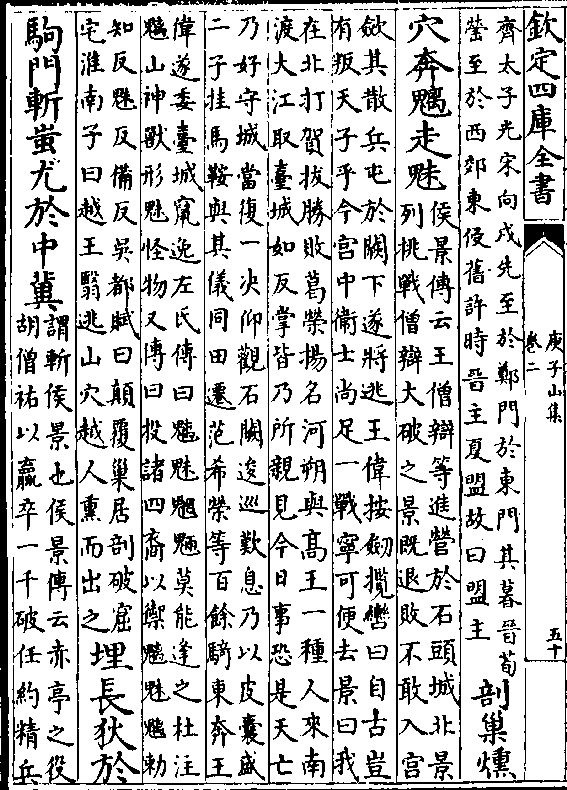 欽定四庫全書
庚子山集
卷二
五十
齊太子光宋向戌先至於鄭門於東門其暮晉荀
罃至於西郊東侵舊許時晉主夏盟故曰盟主
剖巢燻
穴奔魑走魅
侯景傳云王僧辯等進營於石頭城北景
列挑戰僧辯大破之景既退敗不敢入宮
斂其散兵屯於闕下遂將逃王偉按劒攬轡曰自古豈
有叛天子乎今宮中衛士尚足一戰寧可便去景曰我
在北打賀拔勝敗葛榮揚名河朔與高王一種人來南
渡大江取臺城如反掌皆乃所親見今日事恐是天亡
乃好守城當復一决仰觀石闕逡巡歎息乃以皮囊盛
二子挂馬鞍與其儀同田遷范希榮等百餘騎東奔王
偉遂委臺城竄逸左氏傳曰魑魅魍魎莫能逢之杜注
魑山神獸形魅怪物又傳曰投諸四裔以禦魑魅魑勅
知反魅反備反吳都賦曰顛覆巢居剖破窟
宅淮南子曰越王翳逃山穴越人熏而出之
埋長狄於
駒門斬蚩尤於中冀
謂斬侯景也侯景傳云赤亭之役
胡僧祐以羸卒一千破任約精兵